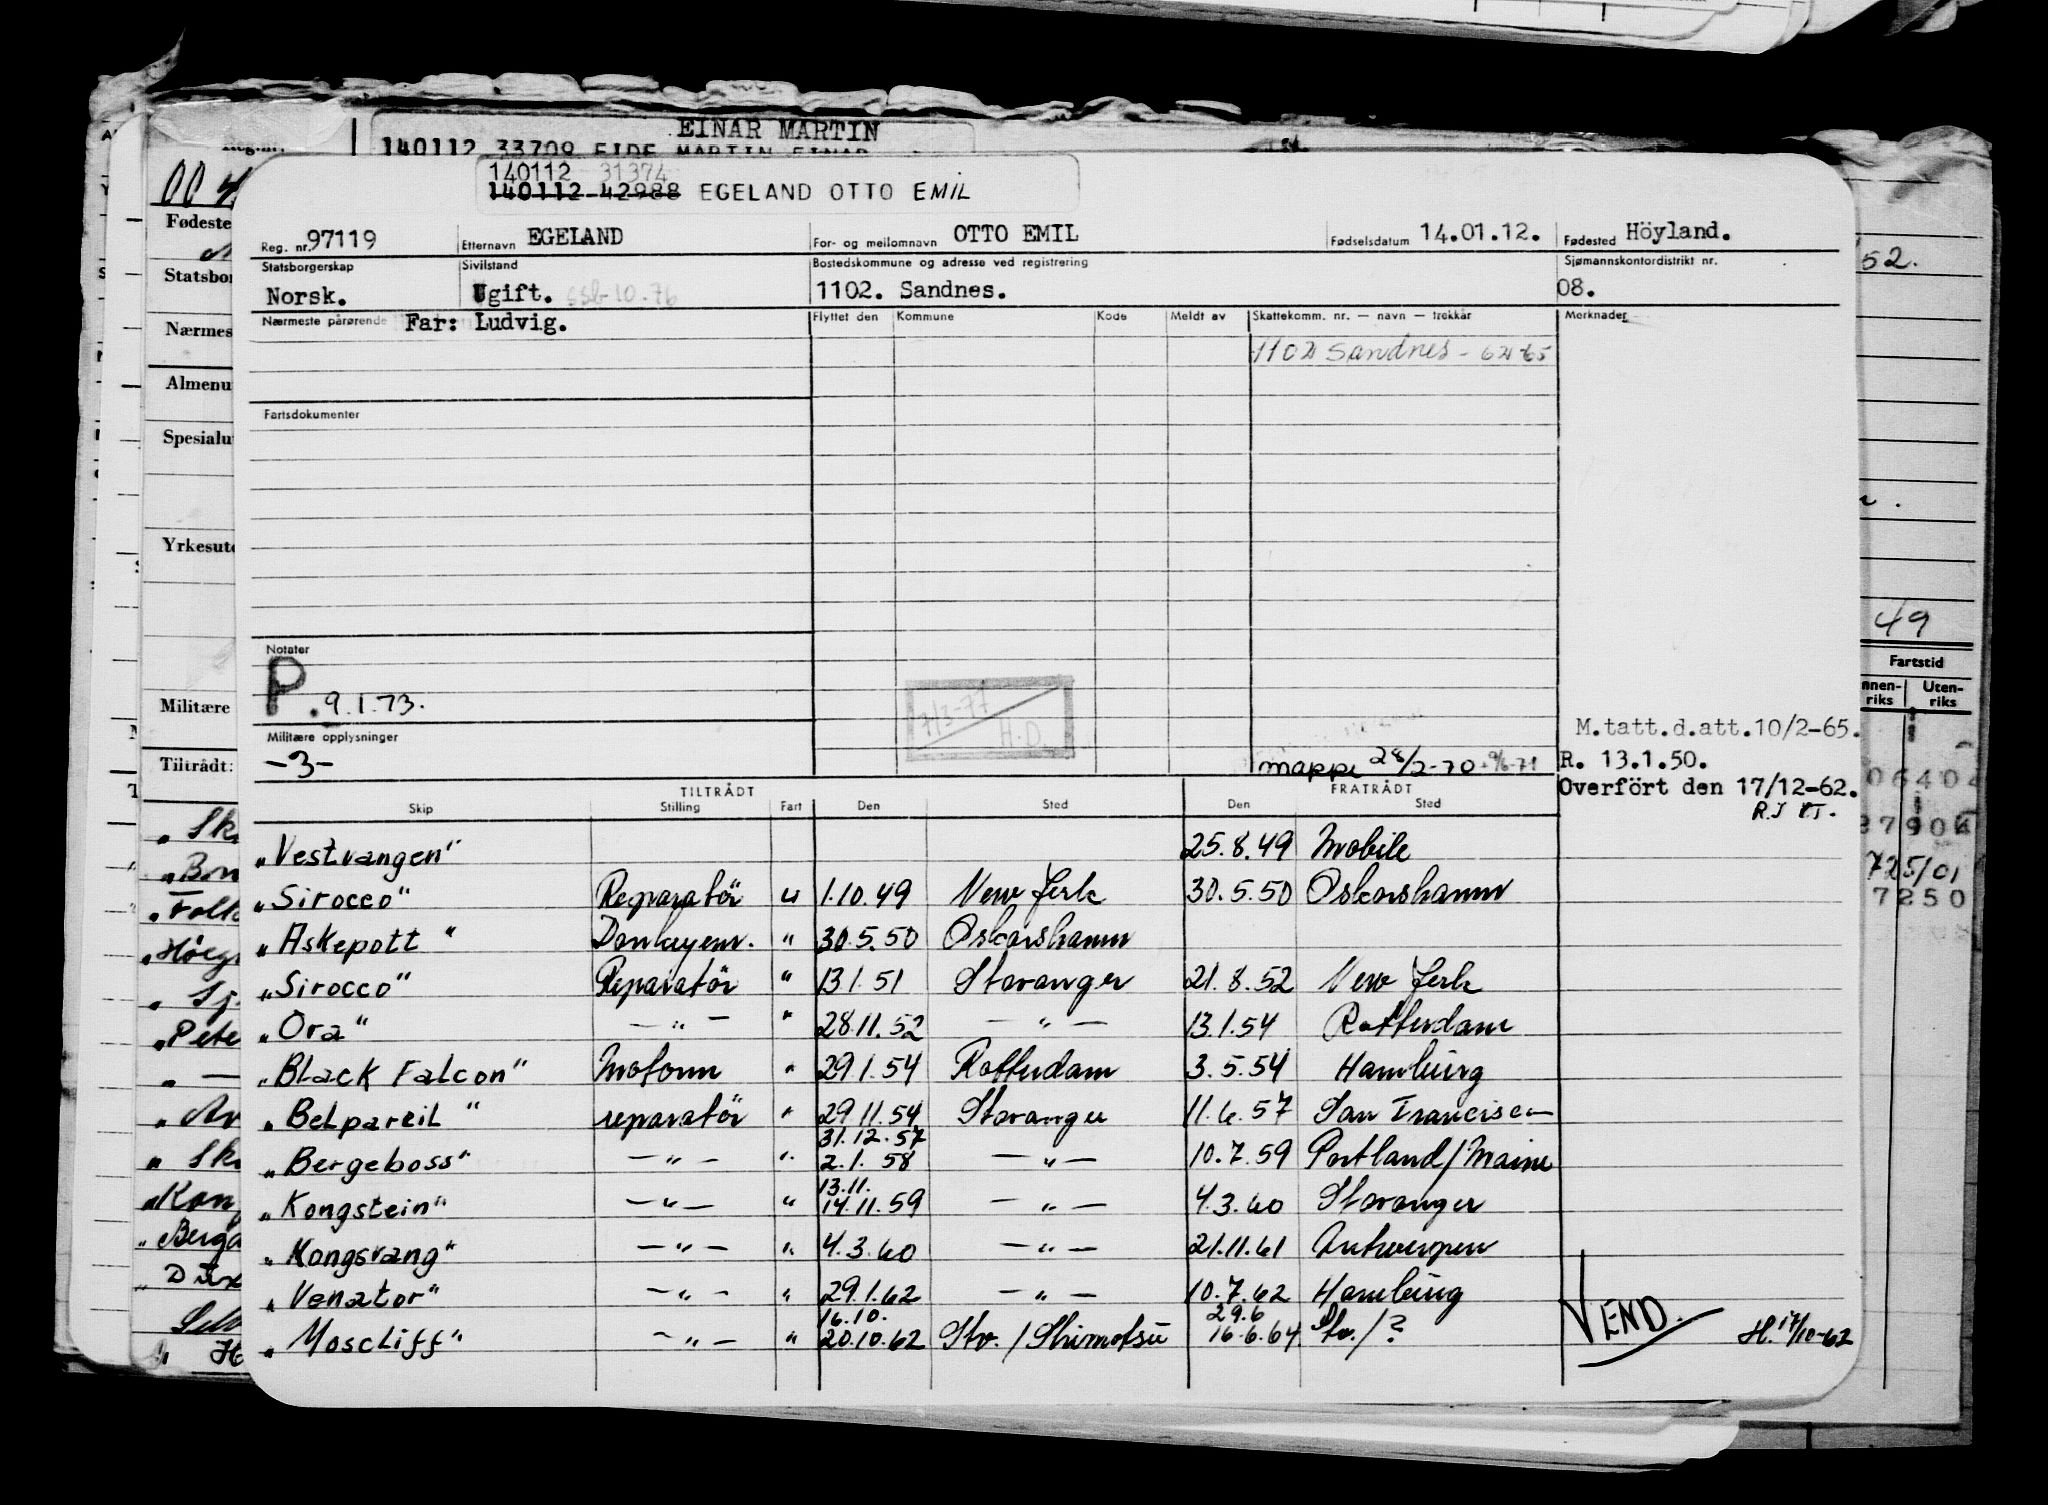 EINAR MARTIN
140112 33709 EIDE MARTIN EINAR
Reg.nr.
00 4
140112 31374
140112-42988 EGELAND OTTO EMIL
Reg. nr. 97119 Etternavn EGELAND For- og mellomnavn OTTO EMIL Fødselsdatum 14.01.12. Fødested Höyland.
Statsborgerskap Sivilstand Bostedskommune og adresse ved registrering Sjømannskontordistrikt nr.
Norsk. Ugift. ssb-10.76 1102. Sandnes. 08.
Nærmeste pårørende Far: Ludvig. Flyttet den Kommune Kode Meldt av Skattekomm. nr. — navn — trekkår Merknader
1102 Sandnes - 62-65
Fartsdokumenter
Notater
P. 9.1.73.
7/3-77
H.D.
Militære opplysninger
-3-
mappe 28/2-70
M.tatt.d.att.10/2-65.
R. 13.1.50.
Overfört den 17/12-62.
TILTRÅDT FRATRÅDT
Skip Stilling Fart Den Sted Den Sted
"Vestvangen" 25.8.49 Mobile
"Sirocco" Reparatör u 1.10.49 New Jerk 30.5.50 Oskarshamn
"Askepott" Donkeyem. " 30.5.50 Oskarshamn
"Sirocco" Reparatör " 13.1.51 Stavanger 21.8.52 New Jerk
"Ora" — " — " 28.11.52 — " — 13.1.54 Rotterdam
"Black Falcon" Motorm " 29.1.54 Rotterdam 3.5.54 Hamburg
"Belpareil" reparatör " 29.11.54 Stavanger 11.6.57 San Francisco
31.12.57
"Bergeboss" — " — " 2.1.58 — " — 10.7.59 Portland/Maine
13.11.
"Kongstein" — " — " 14.11.59 — " — 4.3.60 Stavanger
"Kongsvang" — " — " 4.3.60 — " — 21.11.61 Antwerpen
"Venator" — " — " 29.1.62 — " — 10.7.62 Hamburg
16.10. 29.6
"Moscliff" — " — " 20.10.62 Stv./Shimotsu 16.6.64. Stv./?
VEND. H. 17/10-62
Fødeste
Statsbor
Nærmes
Almenu
Spesialu
Yrkesut
Militære
Tiltrådt:
52.
49
Fartstid
nnen-
riks
Uten-
riks
06404
37904
725/01
7250